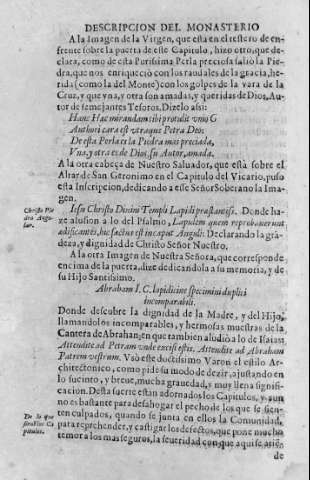 DESCRIPCION DEL MONASTERIO
A la Imagen de la Virgen, que està en el testero de en-
frente sobre la puerta de este Capitulo, hizo otro, que de-
clara, como de esta Purissima Perla preciosa salió la Pie-
dra, que nos enriqueciò con los raudales de la gracia, he-
rida (como la del Monte) con los golpes de la vara de la
Cruz, y que vna, y otra son amadas, y queridas de Dios, Au-
tor de semejantes Tesoros. Dizelo assi:
Hanc mirandam sibi protulit
Authori cara est vtraque Petra Deo:
De esta Perla es la Piedra mas preciada,
Vna, y otra es de Dios, su Autor, amada.
A la otra cabeça de Nuestro Salvador, que està sobre el
Altar de San Geronimo en el Capitulo del Vicario, puso
esta Inscripcion, dedicando a este Señor Soberano la Ima-
gen.
Christo Pie
dra Angu-
lar.
Iesu Christo Divini Templi Lapidi præstantiss. Donde ha-
ze alusion a lo del Psalmo, Lapidem quem reprobaverunt
ædificantes, hic factus est in caput Anguli: Declarando la grã-
deza, y dignidad de Christo Señor Nuestro.
A la otra Imagen de Nuestra Señora, que corresponde
encima de la puerta, dize dedicandola a su memoria, y de
su Hijo Santissimo.
Abraham I. C. lapidicinæ specimini duplici
incomparabili.
Donde descubre la dignidad de la Madre, y del Hijo,
llamandolos incomparables, y hermosas muestras de la
Cantera de Abrahan, en que tambien aludiò a lo de Isaias:
Attendite ad Petram vnde excisi estis. Attendite ad Abraham
Patrem vestrum. Vsò este doctissimo Varon el estilo Ar-
chitectonico, como pide su modo de dezir, ajustando en
lo sucinto, y breve, mucha gravedad, y muy llena signifi-
cacion. Desta suerte estàn adornados los Capitulos, y aun
no es bastante para desahogar el pecho de los que se sien-
De lo que
sirven los Ca
pitulos.
ten culpados, quando se junta en ellos la Comunidad,
para reprehender, y castigar los defectos, que pone mucho
temor a los mas seguros, la severidad con que aqui se
de